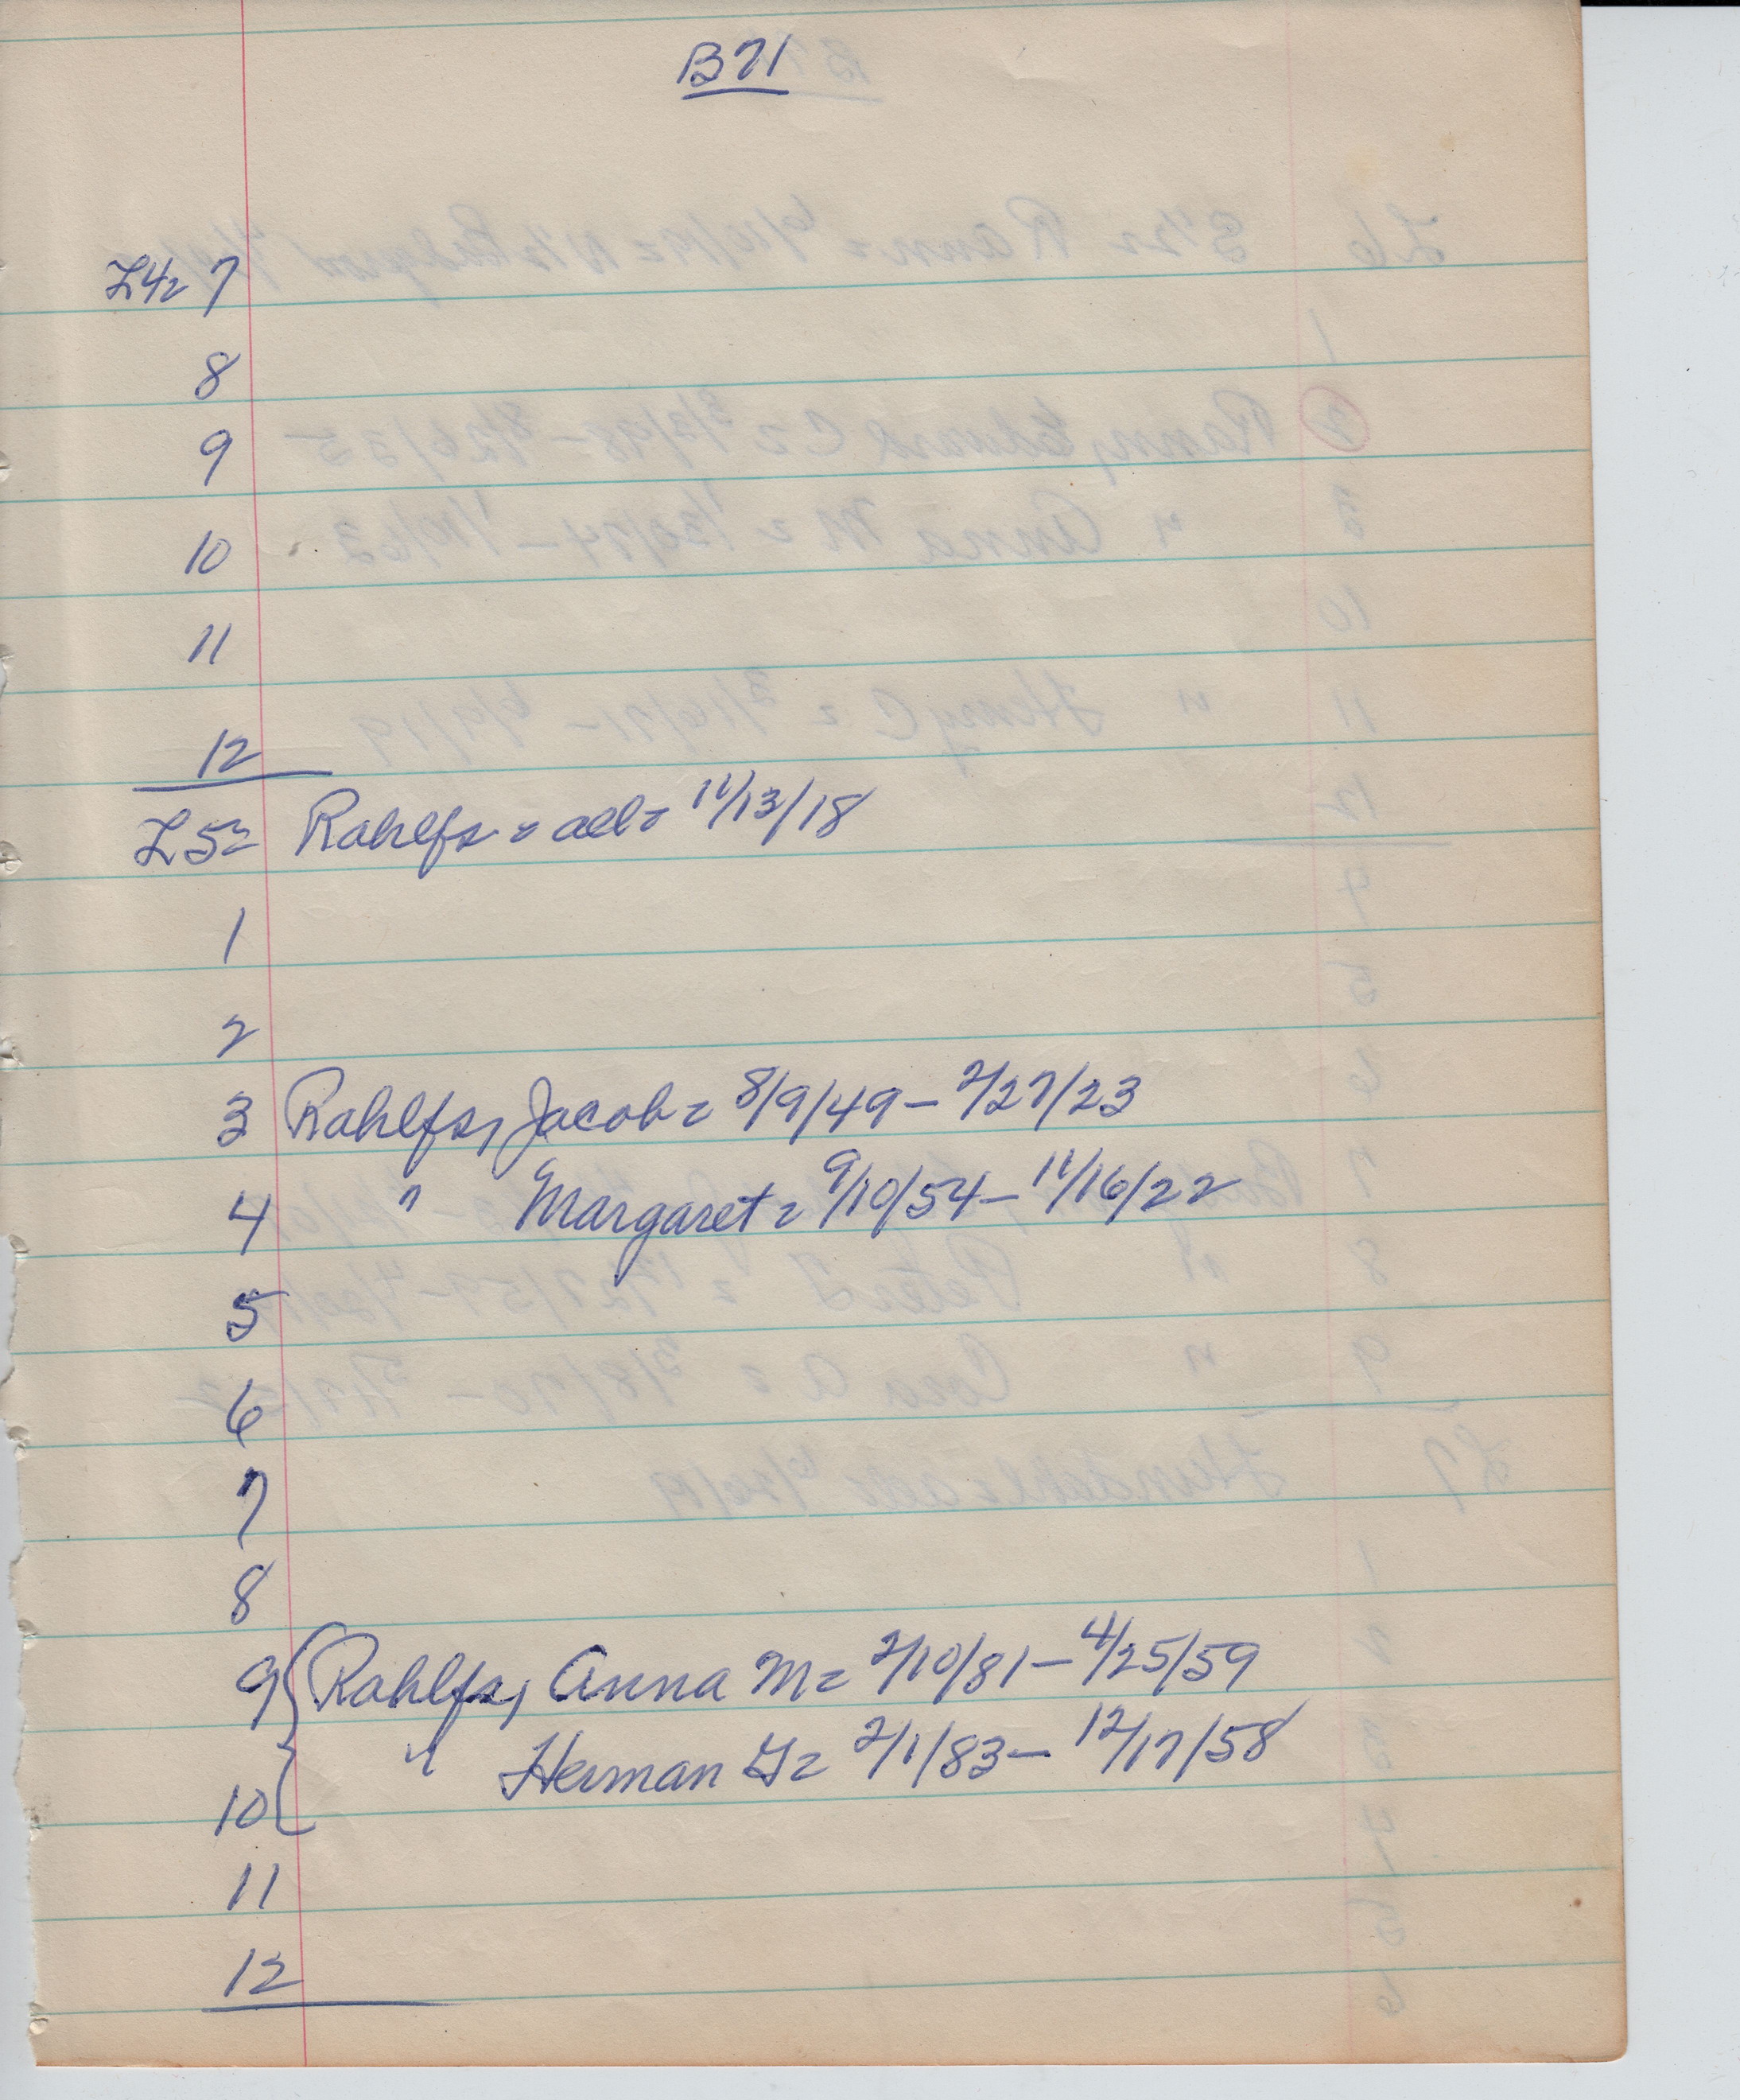 B71
L4= 7
8
9
10
11
12
L5= Rahlfs = all = 11/13/18
1
2
3 Rahlfs, Jacob = 8/9/49 - 2/27/23
4 " Margaret = 9/10/54 - 11/16/22
5
6
7
8
9 { Rahlfs, Anna M = 2/10/81 - 4/25/59
10 { " Herman G = 2/1/83 - 12/17/58
11
12